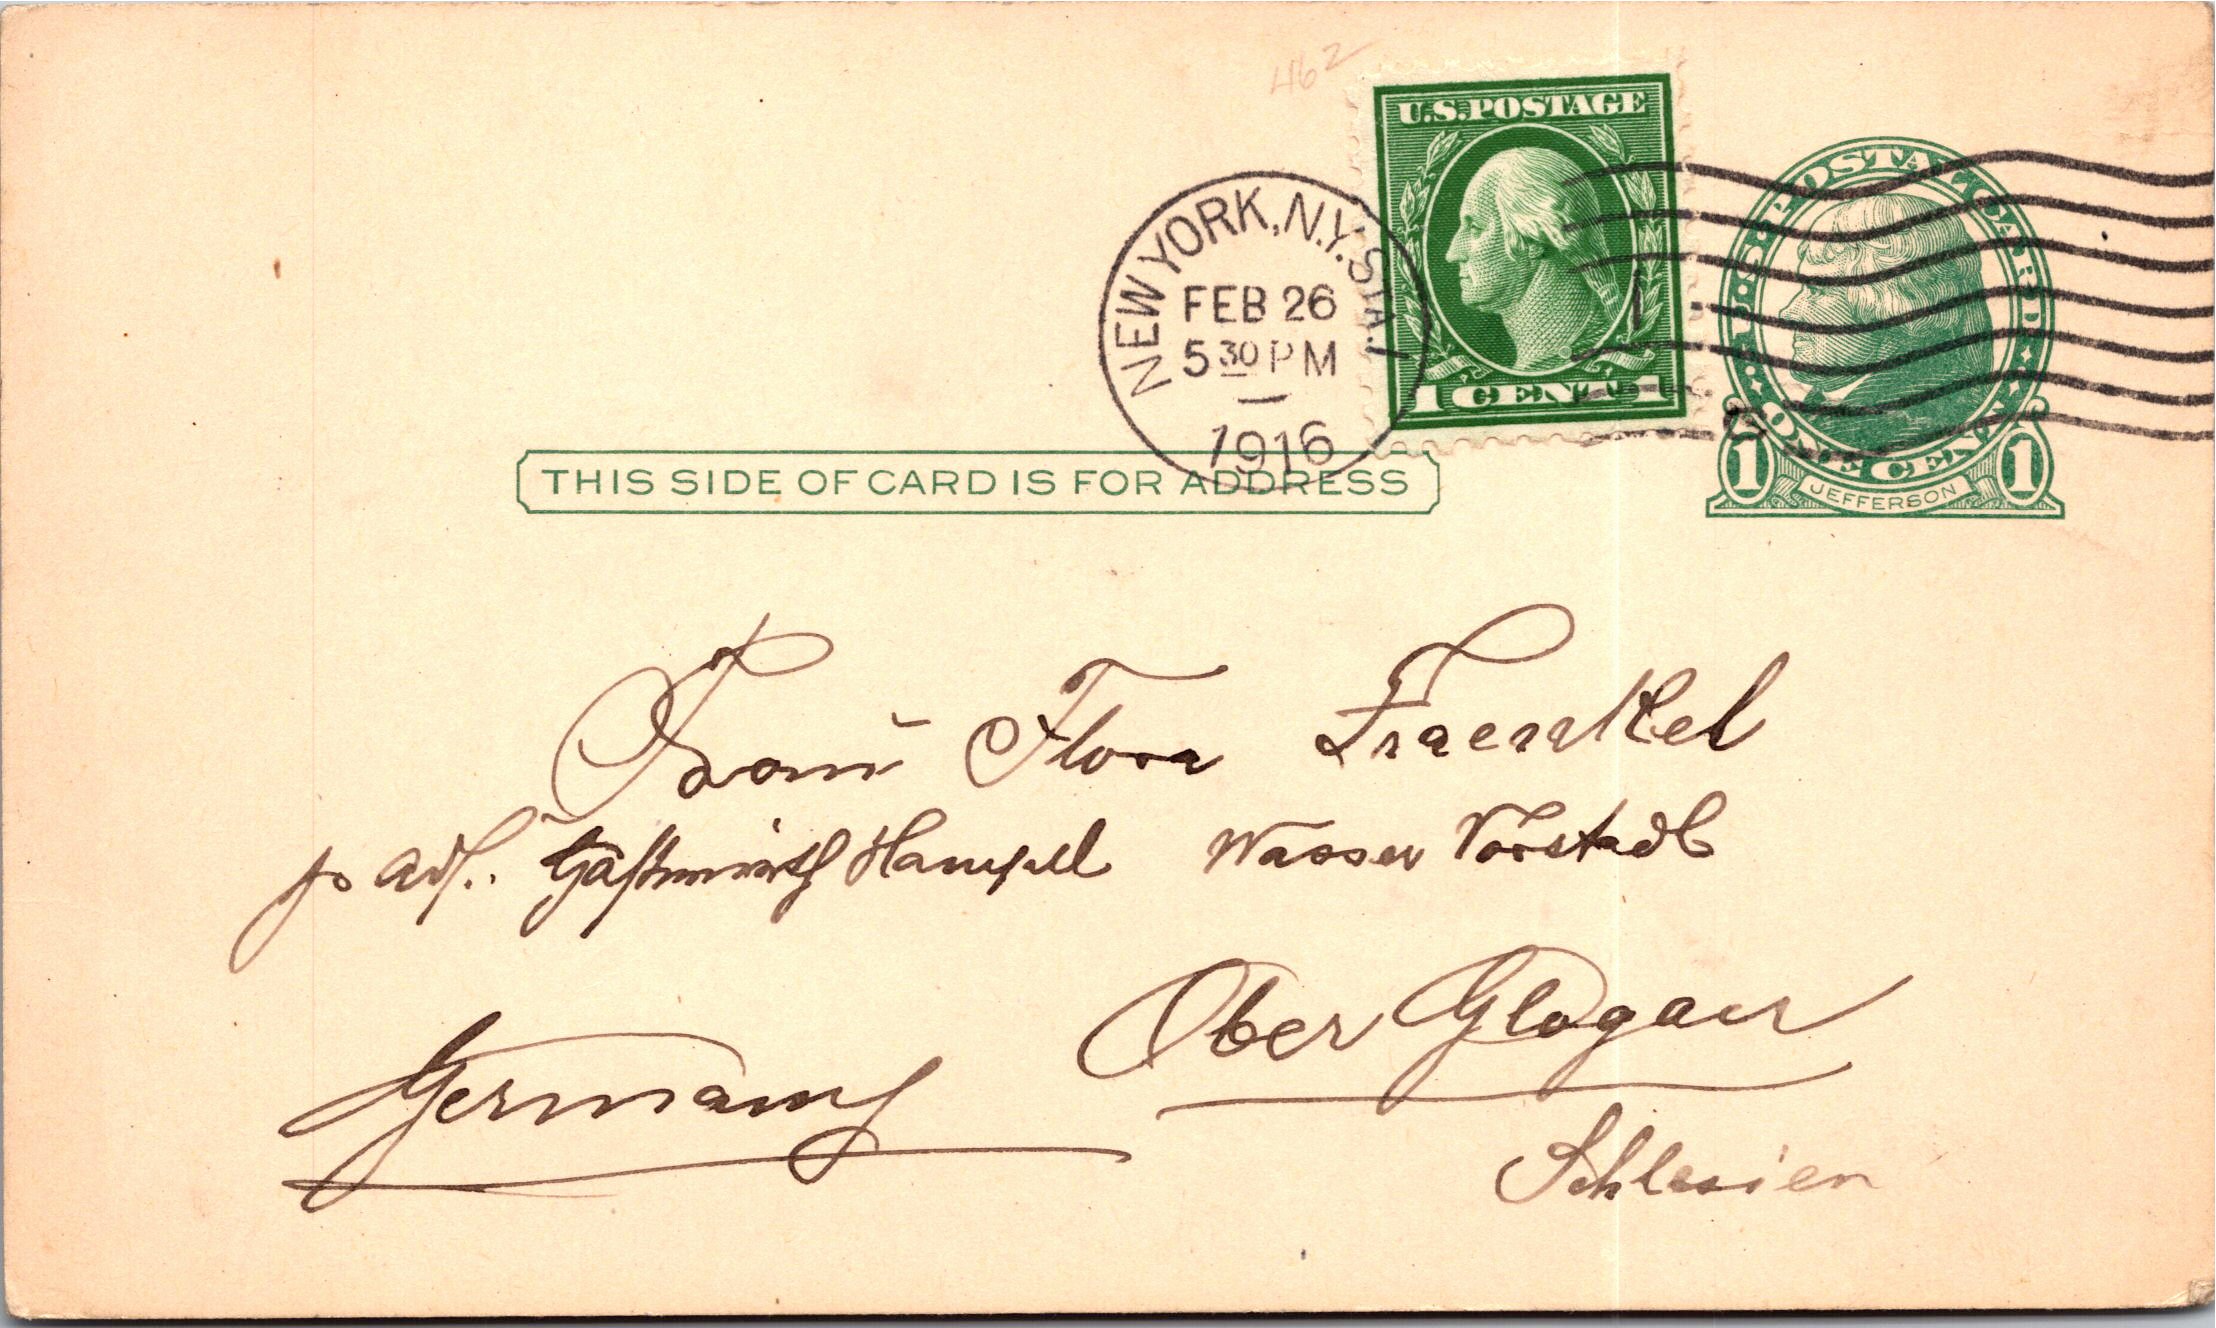 462
U.S. POSTAGE
1 CENT 1
NEW YORK, N.Y. STA. 1
FEB 26
5 30 PM
1916
U·S·POSTAL CARD
ONE CENT
1 1
JEFFERSON
THIS SIDE OF CARD IS FOR ADDRESS
Frau Flora Fraenkel
Wasser Vorstadt
Ober Glogau
Germany
Schlesien